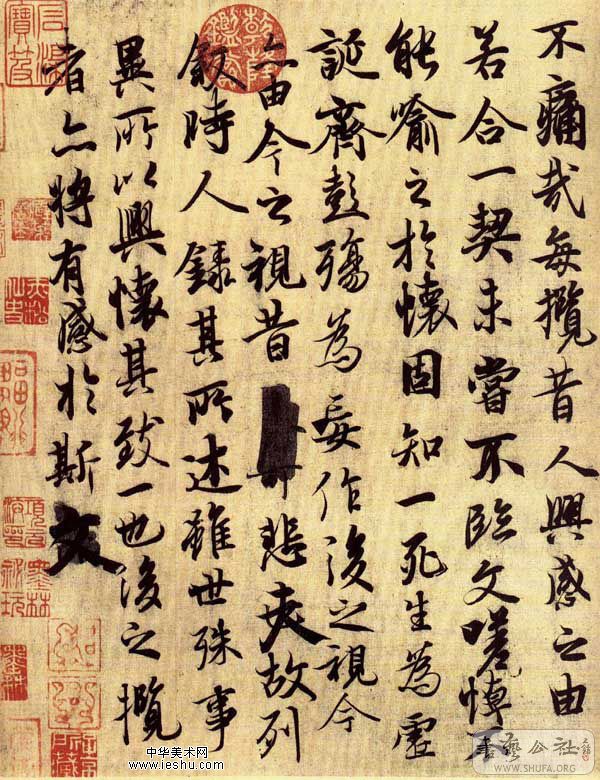 不痛哉每攬昔人興感之由
若合一契未嘗不臨文嗟悼不
能喻之於懷固知一死生為虛
誕齊彭殤為妄作後之視今
亦由今之視昔悲夫故列
敘時人錄其所述雖世殊事
異所以興懷其致一也後之攬
者亦將有感於斯文
墨林祕玩
中华美术网
www.ieshu.com
藝公社
WWW.SHUFA.ORG